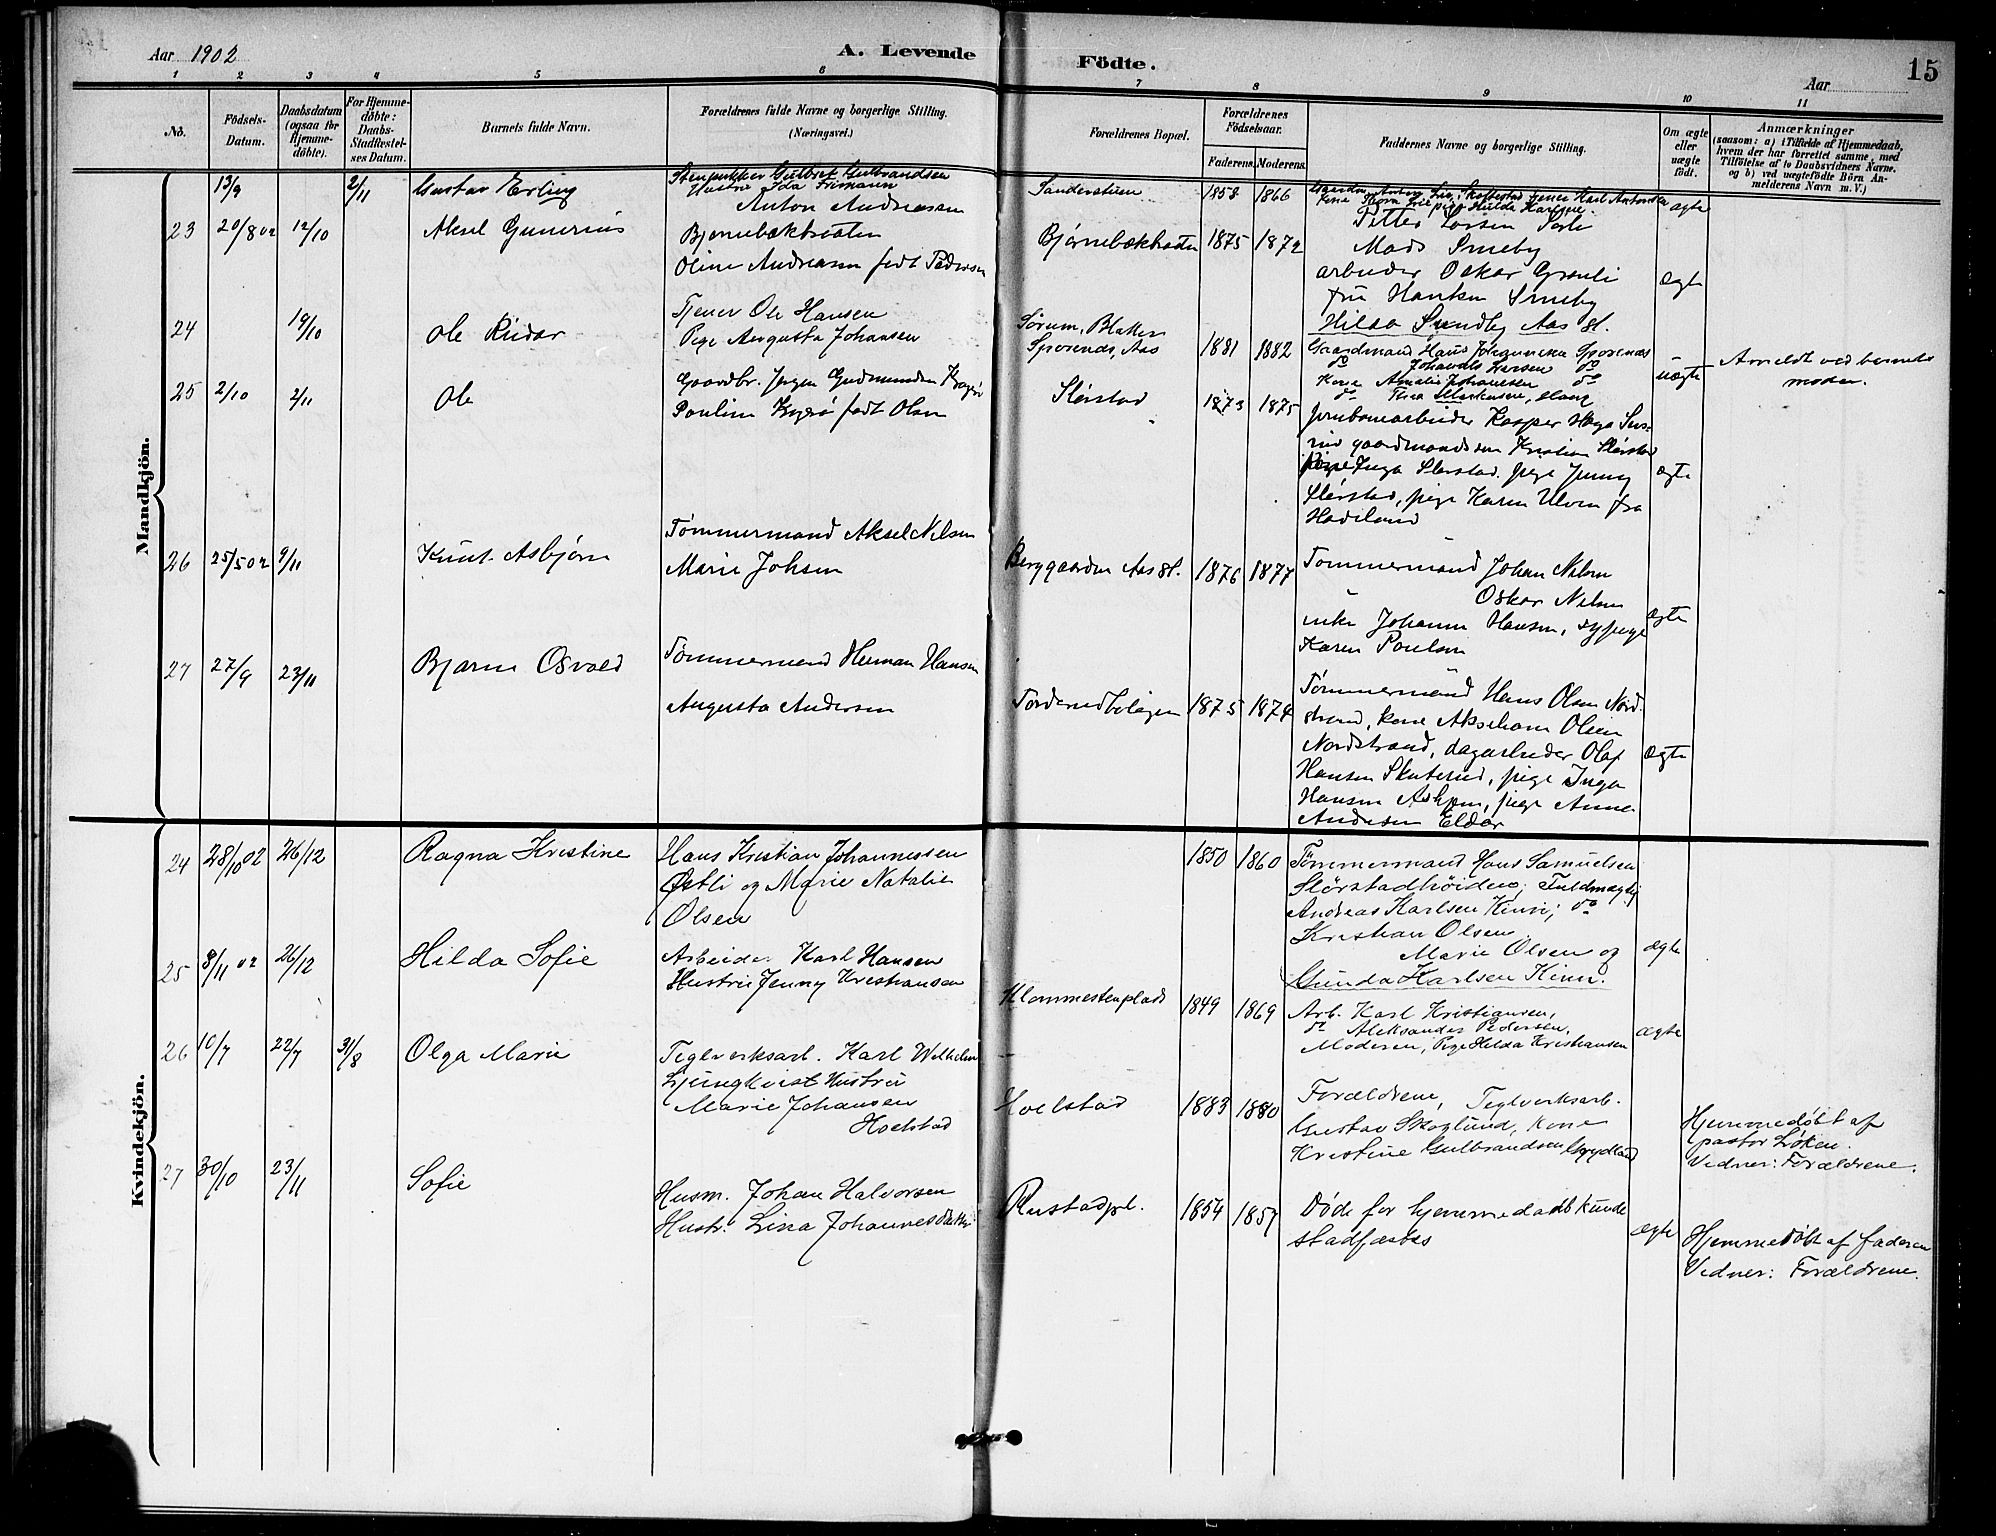 Aar 1902
A. Levende Födte.
Aar
15
1 2 3 4 5 6 7 8 9 10 11
No.
Födsels-Datum.
Daabsdatum (ogsaa for Hjemmedöbte).
For Hjemmedöbte: Daabs-Stadfæstelses Datum.
Barnets fulde Navn.
Forældrenes fulde Navne og borgerlige Stilling. (Næringsvei.)
Forældrenes Bopæl.
Forældrenes Födselsaar.
Faderens. Moderens.
Faddernes Navne og borgerlige Stilling.
Om ægte eller uægte födt.
Anmærkninger
(saasom: a) i Tilfælde af Hjemmedaab,
hvem der har forrettet samme, med
Tilföielse af to Daabsvidners Navne.
og b) ved uægtefödte Börn An-
melderens Navn m. V.)
Mandkjön.
13/9 2/11 Gustav Erling
Gulbrandsen
Hustru Ida
Sanderstuen 1858 1866
ægte
23 20/8 02 12/10 Aksel Gunerius
Anton Andreasen
Oline Andreasen født Pedersen
1875 1872
Petter Larsen
Mads Smeby
arbeider Oskar
fru Smeby
Hilda Sundby Aas st.
ægte
24 19/10 Ole Reidar
Tjener Ole Hansen
Pige Augusta Johansen
Sørum, Blaker
Sporenæs, Aas
1881 1882
Gaardmand Hans Johannesen Sporenæs
uægte
Anmeldt ved barnets
moder.
25 2/10 2/11 Ole
Gaardbr. Jørgen Gudmundsen
Pauline født Olsen
Slørstad 1873 1875
Jernbanearbeider Kasper
gaardmandssøn Kristian Slørstad
Inga Slørstad, pige Jenny
Slørstad, pige Karen Ulven fra
Hadeland
ægte
26 25/5 02 9/11 Knut Asbjørn
Tømmermand Aksel Nilsen
Marie Johsen
Berggaarden Aas st. 1876 1877
Tømmermand Johan Nilsen
" Oskar Nilsen
enke Johanne Hansen, sypige
Karen Poulsen
ægte
27 27/9 23/11 Bjarne Osvald
Tømmermand Herman Hansen
Augusta Andersen
1875 1874
Tømmermand Hans Olsen Nord-
strand, kone Olsen
Nordstrand, dagarbeider Olaf
Hansen Skuterud, pige Inga
Hansen Askjem, pige Anne
Andersen Eldor
ægte
Kvindekjön.
24 28/10 02 26/12 Ragna Kristine
Hans Kristian Johannessen
Østli og Marie Natalie
Olsen
1850 1860
Tømmermand Hans Samuelsen
Slörstadhöiden; Fuldmægtig
Andreas Karlsen Kinn; do
Kristian Olsen
Marie Olsen og
Gunda Karlsen Kinn.
ægte
25 8/11 02 26/12 Hilda Sofie
Arbeider Karl Hansen
Hustru Jenny Kristiansen
Klommestenplads 1849 1869
Arb. Karl Kristiansen,
do Aleksander Pedersen,
Moderen, Pige Hilda Kristiansen
ægte
26 10/7 22/7 31/8 Olga Marie
Teglverksarb. Karl Wilhelm
Ljungkvist Hustru
Marie Johansen
Holstad
Holstad 1883 1880
Forældrene, Teglverksarb.
Gustav Skoglund, Kone
Kristine Gulbrandsen
Hjemmedøbt af
pastor Løken.
Vidner: Forældrene.
27 30/10 23/11 Sofie
Husm. Johan Halvorsen
Hustr. Lina Johannesdatter
Rustadpl. 1854 1857
Døde før hjemmedaab kunde
stadfæstes
ægte
Hjemmedøbt af faderen
Vidner: Forældrene.